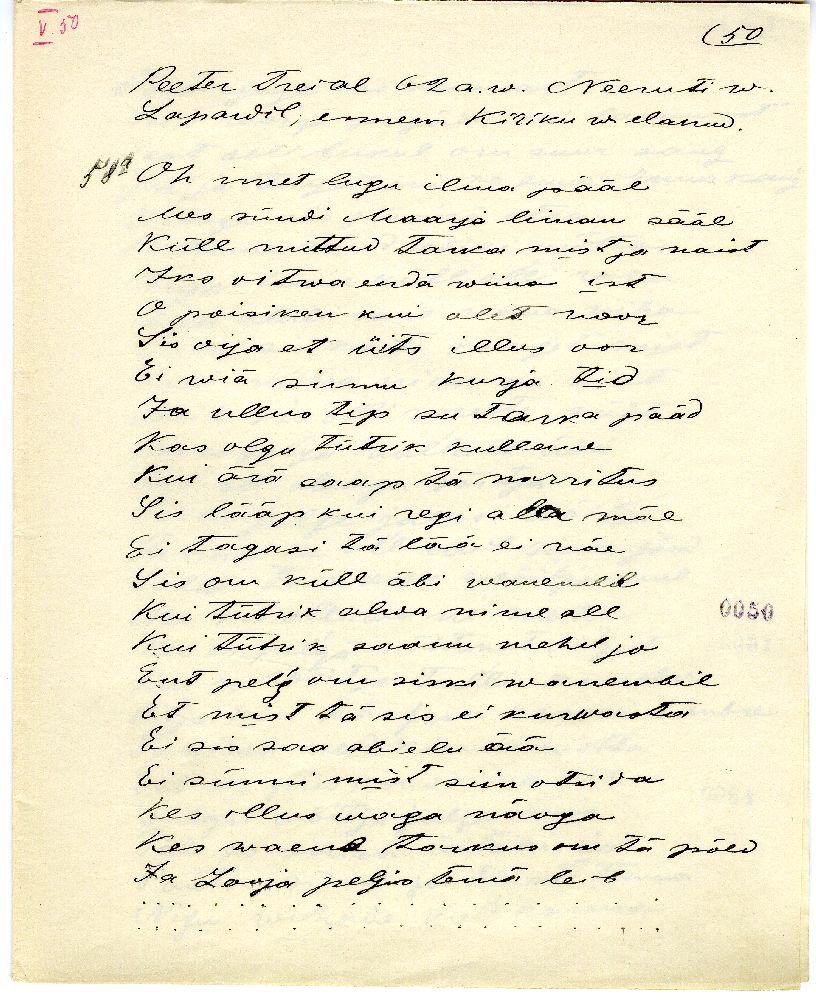 V. 50
(50
Peeter Treial 62 a.w. Neeruti w.
Lapardil, ennem Kiriku w elanud.
Oh imet lugu ilma pääl
Mes sündi Maarja liinan sääl
Küll nuttud tarka mist ja naist
Iks oitwa endä wiina ist
O poisiken kui olet noor
Sis oija et üits illus oor
Ei wiä sinnu kurja tid
Ja ullus tip su tarka pääd
Kas olgu tütrik kullane
Kui ärä saap tä narritus
Sis lääp kui regi alla mäe
Ei tagasi tä lää ei näe
Sis om küll äbi wanembil
Kui tütrik alwa nime all
Kui tütrik saanu mehel jo
Ent pelg om siski wanembil
Et mist tä sis ei kurwasta
Ei sis saa abielu ää
Ei sünni mist siin otsida
Kes illus waga näoga
Kes waene tarkus om tä põed
Ja Looja peljus temä leib
0050